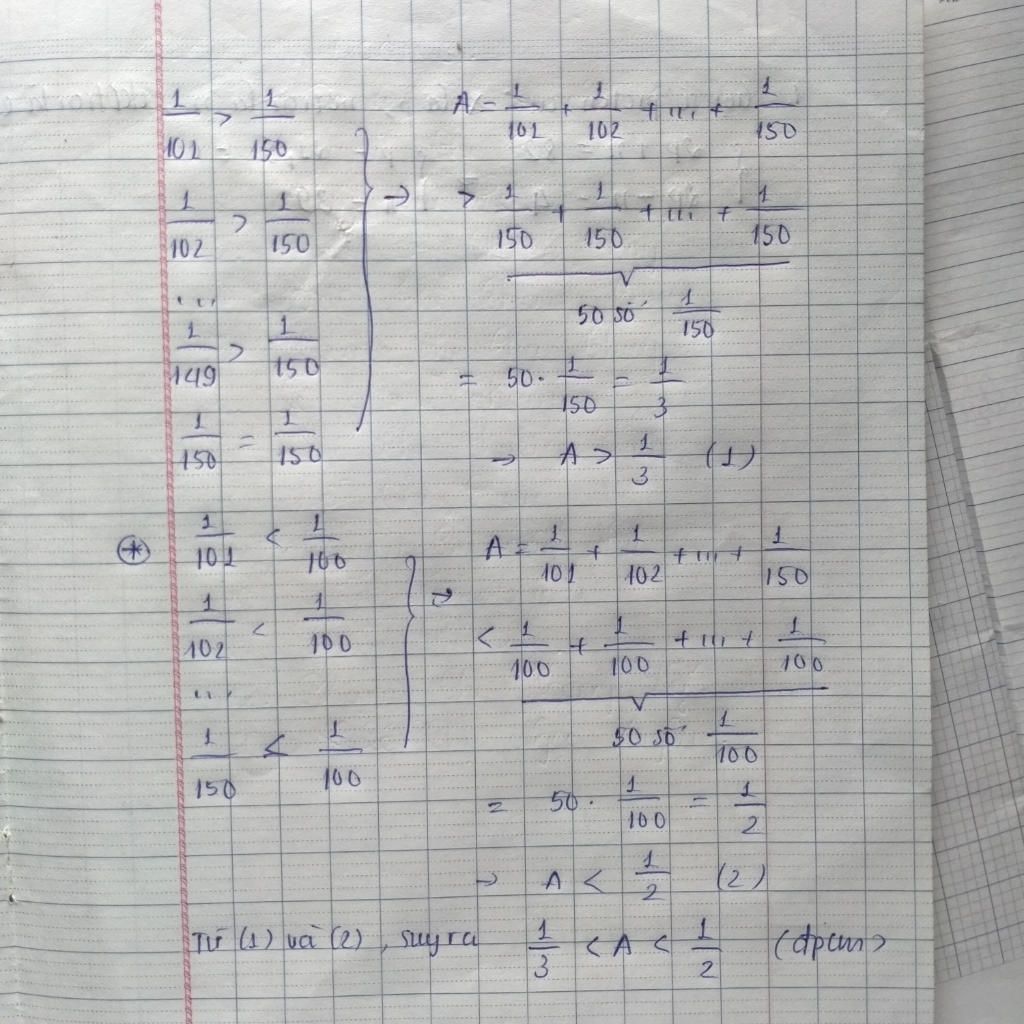 1/101 > 1/150
1/102 > 1/150
...
1/149 > 1/150
1/150 = 1/150
→
A = 1/101 + 1/102 + ... + 1/150
> 1/150 + 1/150 + ... + 1/150
50 số 1/150
= 50 · 1/150 = 1/3
→ A > 1/3 (1)
⊛ 1/101 < 1/100
1/102 < 1/100
...
1/150 < 1/100
→
A = 1/101 + 1/102 + ... + 1/150
< 1/100 + 1/100 + ... + 1/100
50 số 1/100
= 50 · 1/100 = 1/2
→ A < 1/2 (2)
Từ (1) và (2), suy ra 1/3 < A < 1/2 (đpcm)